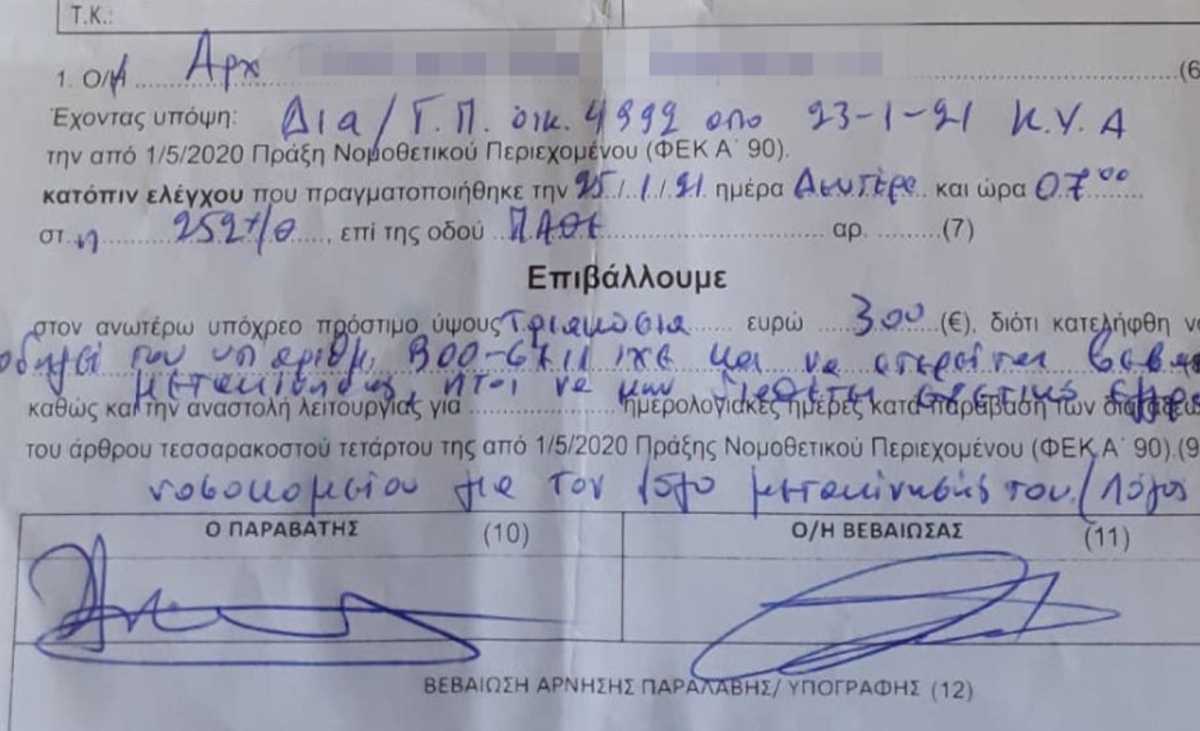 Τ.Κ.:
1. Ο/Η Αρχ (6
Έχοντας υπόψη: Δια/Γ.Π. οικ. 4992 απο 23-1-21 Κ.Υ.Α
την από 1/5/2020 Πράξη Νομοθετικού Περιεχομένου (ΦΕΚ Α΄ 90).
κατόπιν ελέγχου που πραγματοποιήθηκε την 25/1/21 ημέρα Δευτέρα και ώρα 07⁰⁰
στ η 252 χ/θ, επί της οδού ΠΑΘΕ αρ. (7)
Επιβάλλουμε
στον ανωτέρω υπόχρεο πρόστιμο ύψους Τριακόσια ευρώ 300 (€), διότι κατελήφθη να
οδηγεί του υπ αριθμ. ΙΧΕ και να στερείται
μετακίνησης, ήτοι να μην διαθέτει σχετικό
καθώς και την αναστολή λειτουργίας για ημερολογιακές ημέρες κατά παράβαση των
του άρθρου τεσσαρακοστού τετάρτου της από 1/5/2020 Πράξης Νομοθετικού Περιεχομένου (ΦΕΚ Α΄ 90).(9
νοσοκομείου για τον λόγο μετακίνησής του/Λόγος
Ο ΠΑΡΑΒΑΤΗΣ (10) Ο/Η ΒΕΒΑΙΩΣΑΣ (11)
ΒΕΒΑΙΩΣΗ ΑΡΝΗΣΗΣ ΠΑΡΑΛΑΒΗΣ/ ΥΠΟΓΡΑΦΗΣ (12)